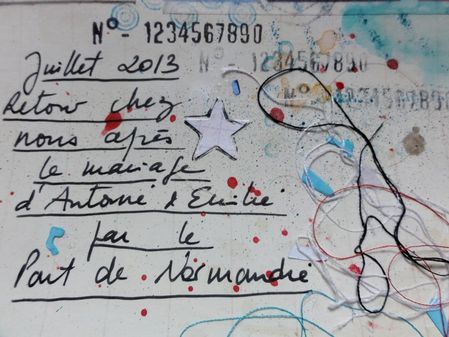 N° - 1234567890
Juillet 2013
N° - 1234567890
Retour chez
N° - 1234567890
nous après
le mariage
d'Antoine & Emilie
par le
Pont de Normandie